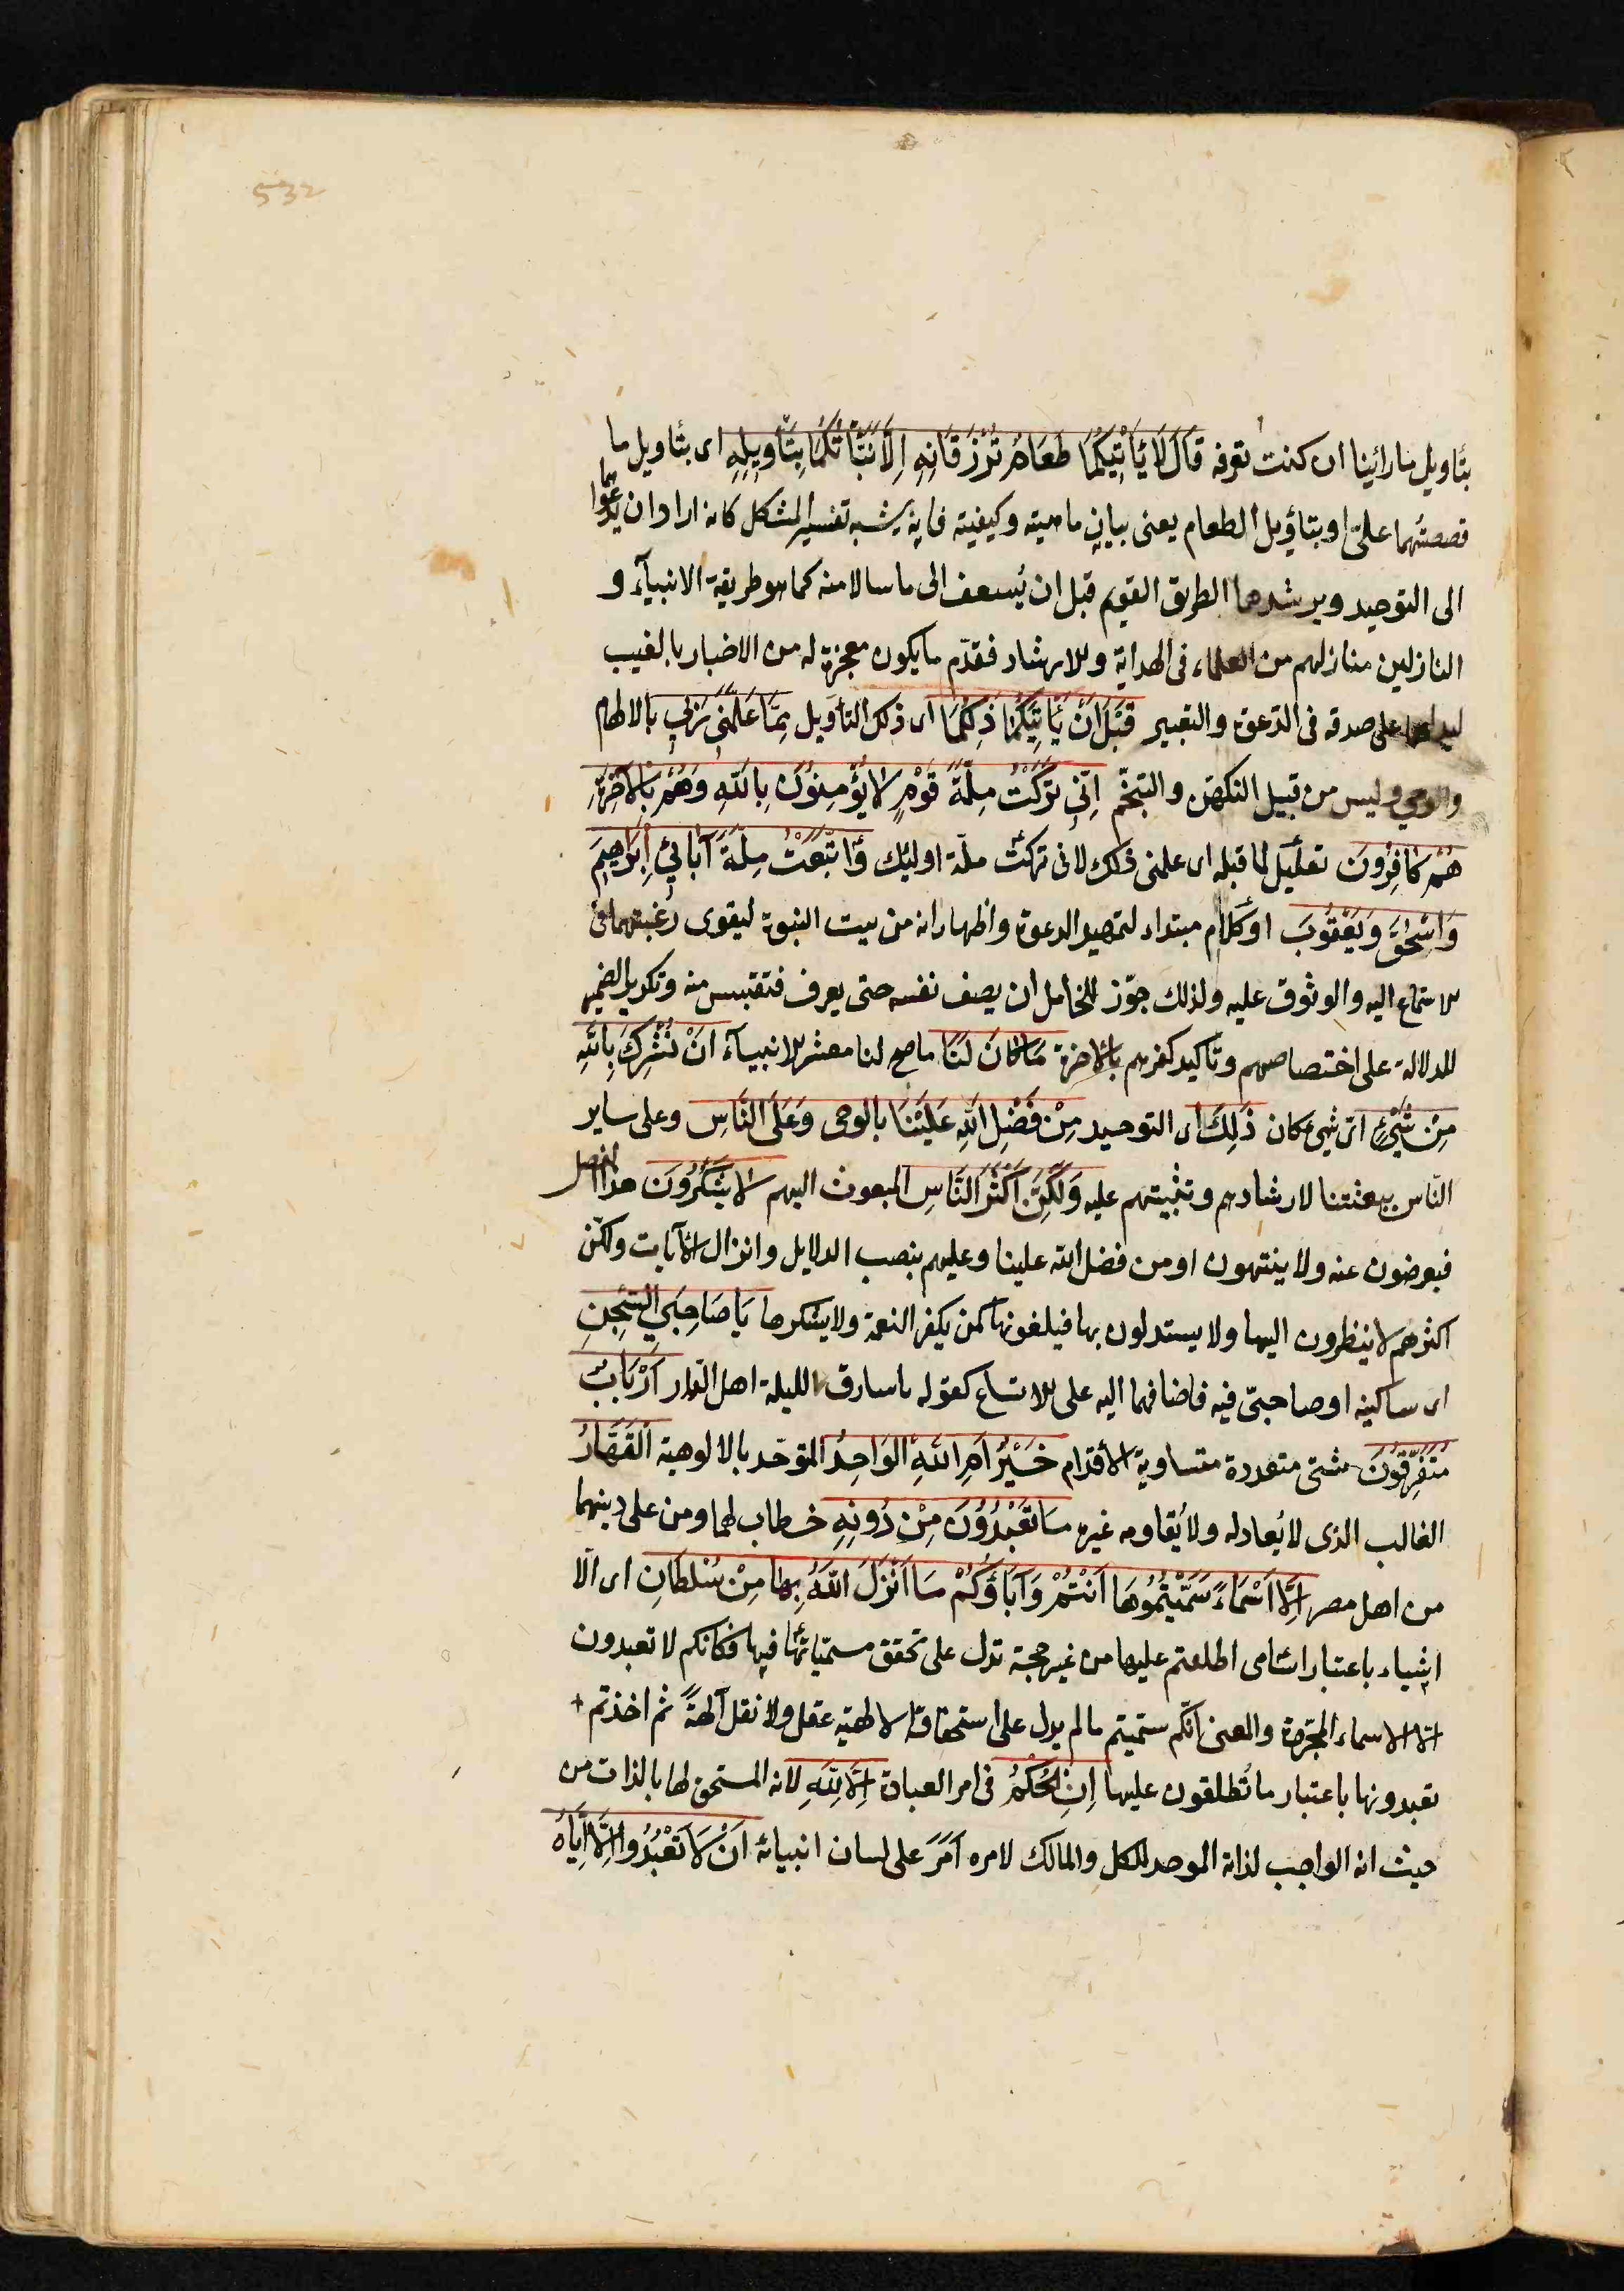 532
بتاويل ما رائينا ان كنت تعرفه قَالَ لَا يَأْتِيكُمَا طَعَامٌ تُرْزَقَانِهِ اِلَّا نَبَّأْتُكُمَا بِتَأْوِيلِهِ اى بتاويل ما
قصصتُهما علىّ او بتاؤيل الطعام يعنى بيانِ ماهيته وكيفيته فانه يشبه تفسير المشكل كانه اراد ان يدعوهما
الى التوحيد ويرشدهما الطريق القويم قبل ان يُسعف الى ما سالا منه كما هو طريقة الانبيآء و
النازلين منازلهم من العلماء فى الهداية والارشاد فقدّم ما يكون معجزة له من الاخبار بالغيب
ليدلهما على صدقه فى الدّعوة والتعبير قَبْلَ اَنْ يَأْتِيَكُمَا ذَلِكُمَا اى ذلك التأويل مِمَّا عَلَّمَنِي رَبِّي بالالهام
والوحي وليس من قبيل التكهّن والتنجّم اِنِّي تَرَكْتُ مِلَّةَ قَوْمٍ لَا يُؤْمِنُونَ بِاللّهِ وَهُمْ بِالْآخِرَةِ
هُمْ كَافِرُونَ تعليل لما قبله اى علمنى ذلك لانى تركتُ ملّة اوليك وَاتَّبَعْتُ مِلَّةَ آبَائِي اِبْرَاهِيمَ
وَاِسْحٰقَ وَيَعْقُوبَ او كلام مبتداء لتمهيد الدعوة واظهار انه من بيت النبوة ليقوى رغبتهما فى
الاستماع اليه والوثوق عليه ولذلك جوّز للخامل ان يصف نفسه حتى يعرف فتقتبس منه وتكرير الضمير
للدلالة على اختصاصهم وتأكيد كفرهم بالاخرة مَا كَانَ لَنَا ما صح لنا معشر الانبيآء اَنْ نُشْرِكَ بِاللّهِ
مِنْ شَيْءٍ اىّ شىء كان ذَلِكَ اى التوحيد مِنْ فَضْلِ اللّهِ عَلَيْنَا بالوحى وَعَلَى النَّاسِ وعلى ساير
النّاس ببعثتنا لارشادهم وتثبيتهم عليه وَلَكِنَّ اَكْثَرَ النَّاسِ المبعوث اليهم لَا يَشْكُرُونَ هذا الفضل
فيعرضون عنه ولا ينتهون او من فضل الله علينا وعليهم بنصب الدلايل وانزال الآيات ولكن
اكثرهم لا ينظرون اليها ولا يستدلون بها فيلغونها كمن يكفر النعمة ولا يشكرها يَا صَاحِبَيِ السِّجْنِ
اى ساكنيه او صاحبىّ فيه فاضافهما اليه على الاتساع كقوله يا سارق الليلة اهل الدار اَرْبَابٌ
مُتَفَرِّقُونَ شتى متعددة متساوية الأقدام خَيْرٌ اَمِ اللّهُ الْوَاحِدُ المتوحّد بالالوهية الْقَهَّارُ
الغالب الذى لا يُعادله ولا يُقاومه غيره مَا تَعْبُدُونَ مِنْ دُونِهِ خطاب لهما ومن على دينهما
من اهل مصر اِلَّا اَسْمَاءً سَمَّيْتُمُوهَا اَنْتُمْ وَآبَاؤُكُمْ مَا اَنْزَلَ اللّهُ بِهَا مِنْ سُلْطَانٍ اى الّا
اشياء باعتبار اسامى اطلعتم عليها من غير حجة تدل على تحقق مسمّياتها فيها فكانكم لا تعبدون
الا الاسماء المجرّدة والمعنى انكم سمّيتم ما لم يدل على استحقاقه الالهيه عقل ولا نقل آلهةً ثم اخذتم
تعبدونها باعتبار ما تُطلقون عليها اِنِ الْحُكْمُ فى امر العبادة اِلَّا لِلّهِ لانه المستحق لها بالذات من
حيث انه الواجب لذاته الموجد للكل والمالك لامره اَمَرَ على لسان انبيائه اَنْ لَا تَعْبُدُوا اِلَّا اِيَّاهُ